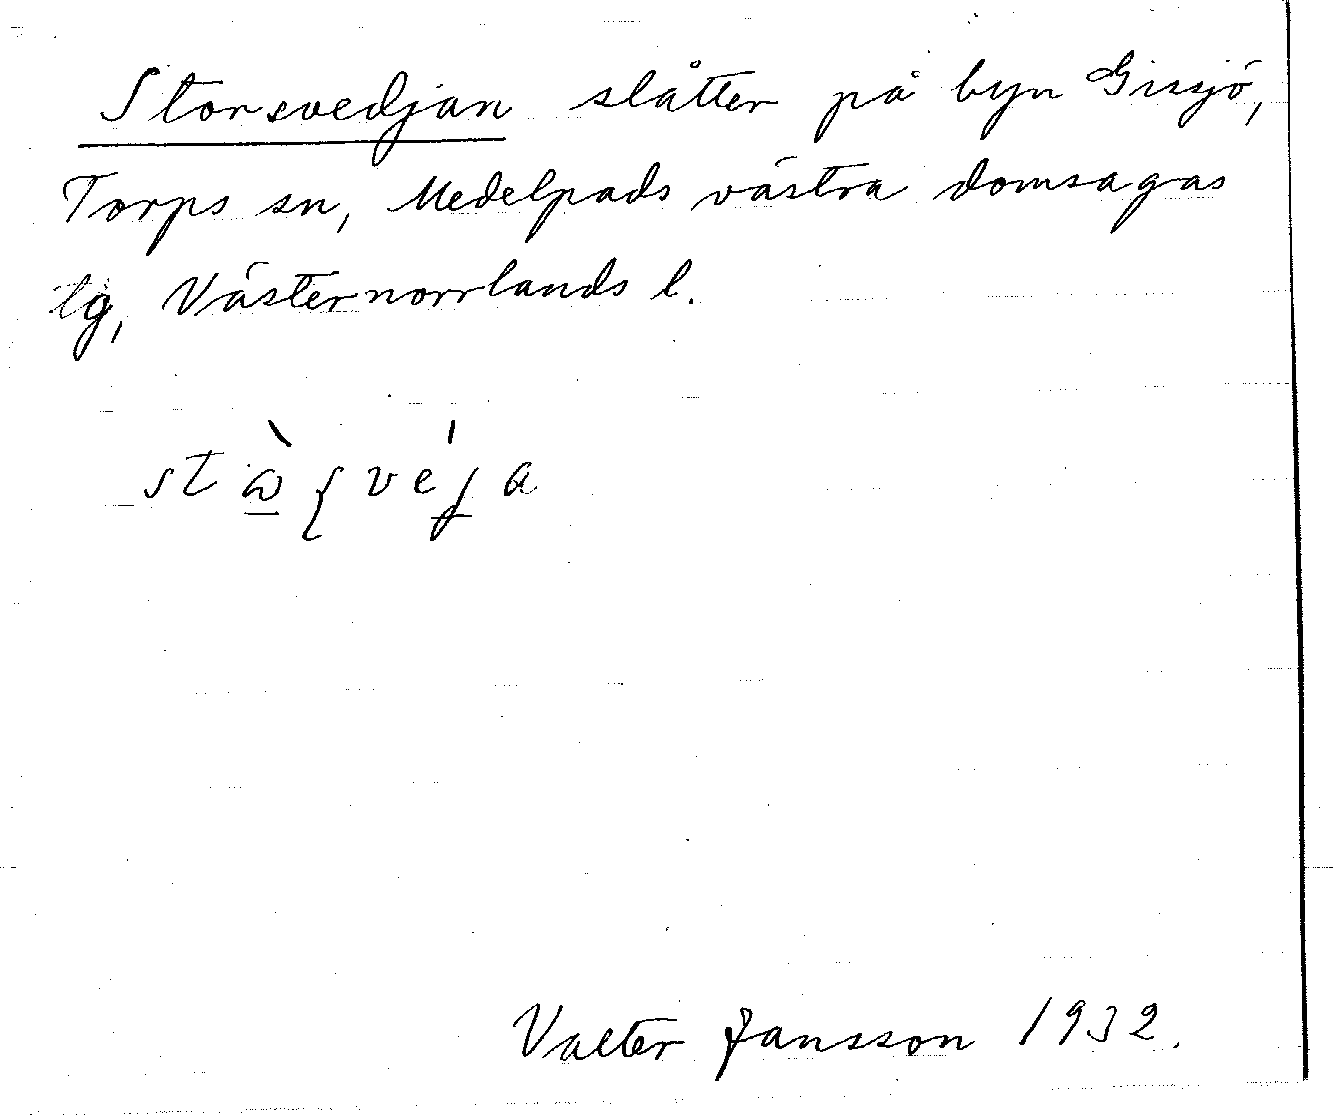 Storsvedjan slåtter på byn Gissjö,
Torps sn, Medelpads västra domsagas
lg, Västernorrlands l.
Valter Jansson 1932.